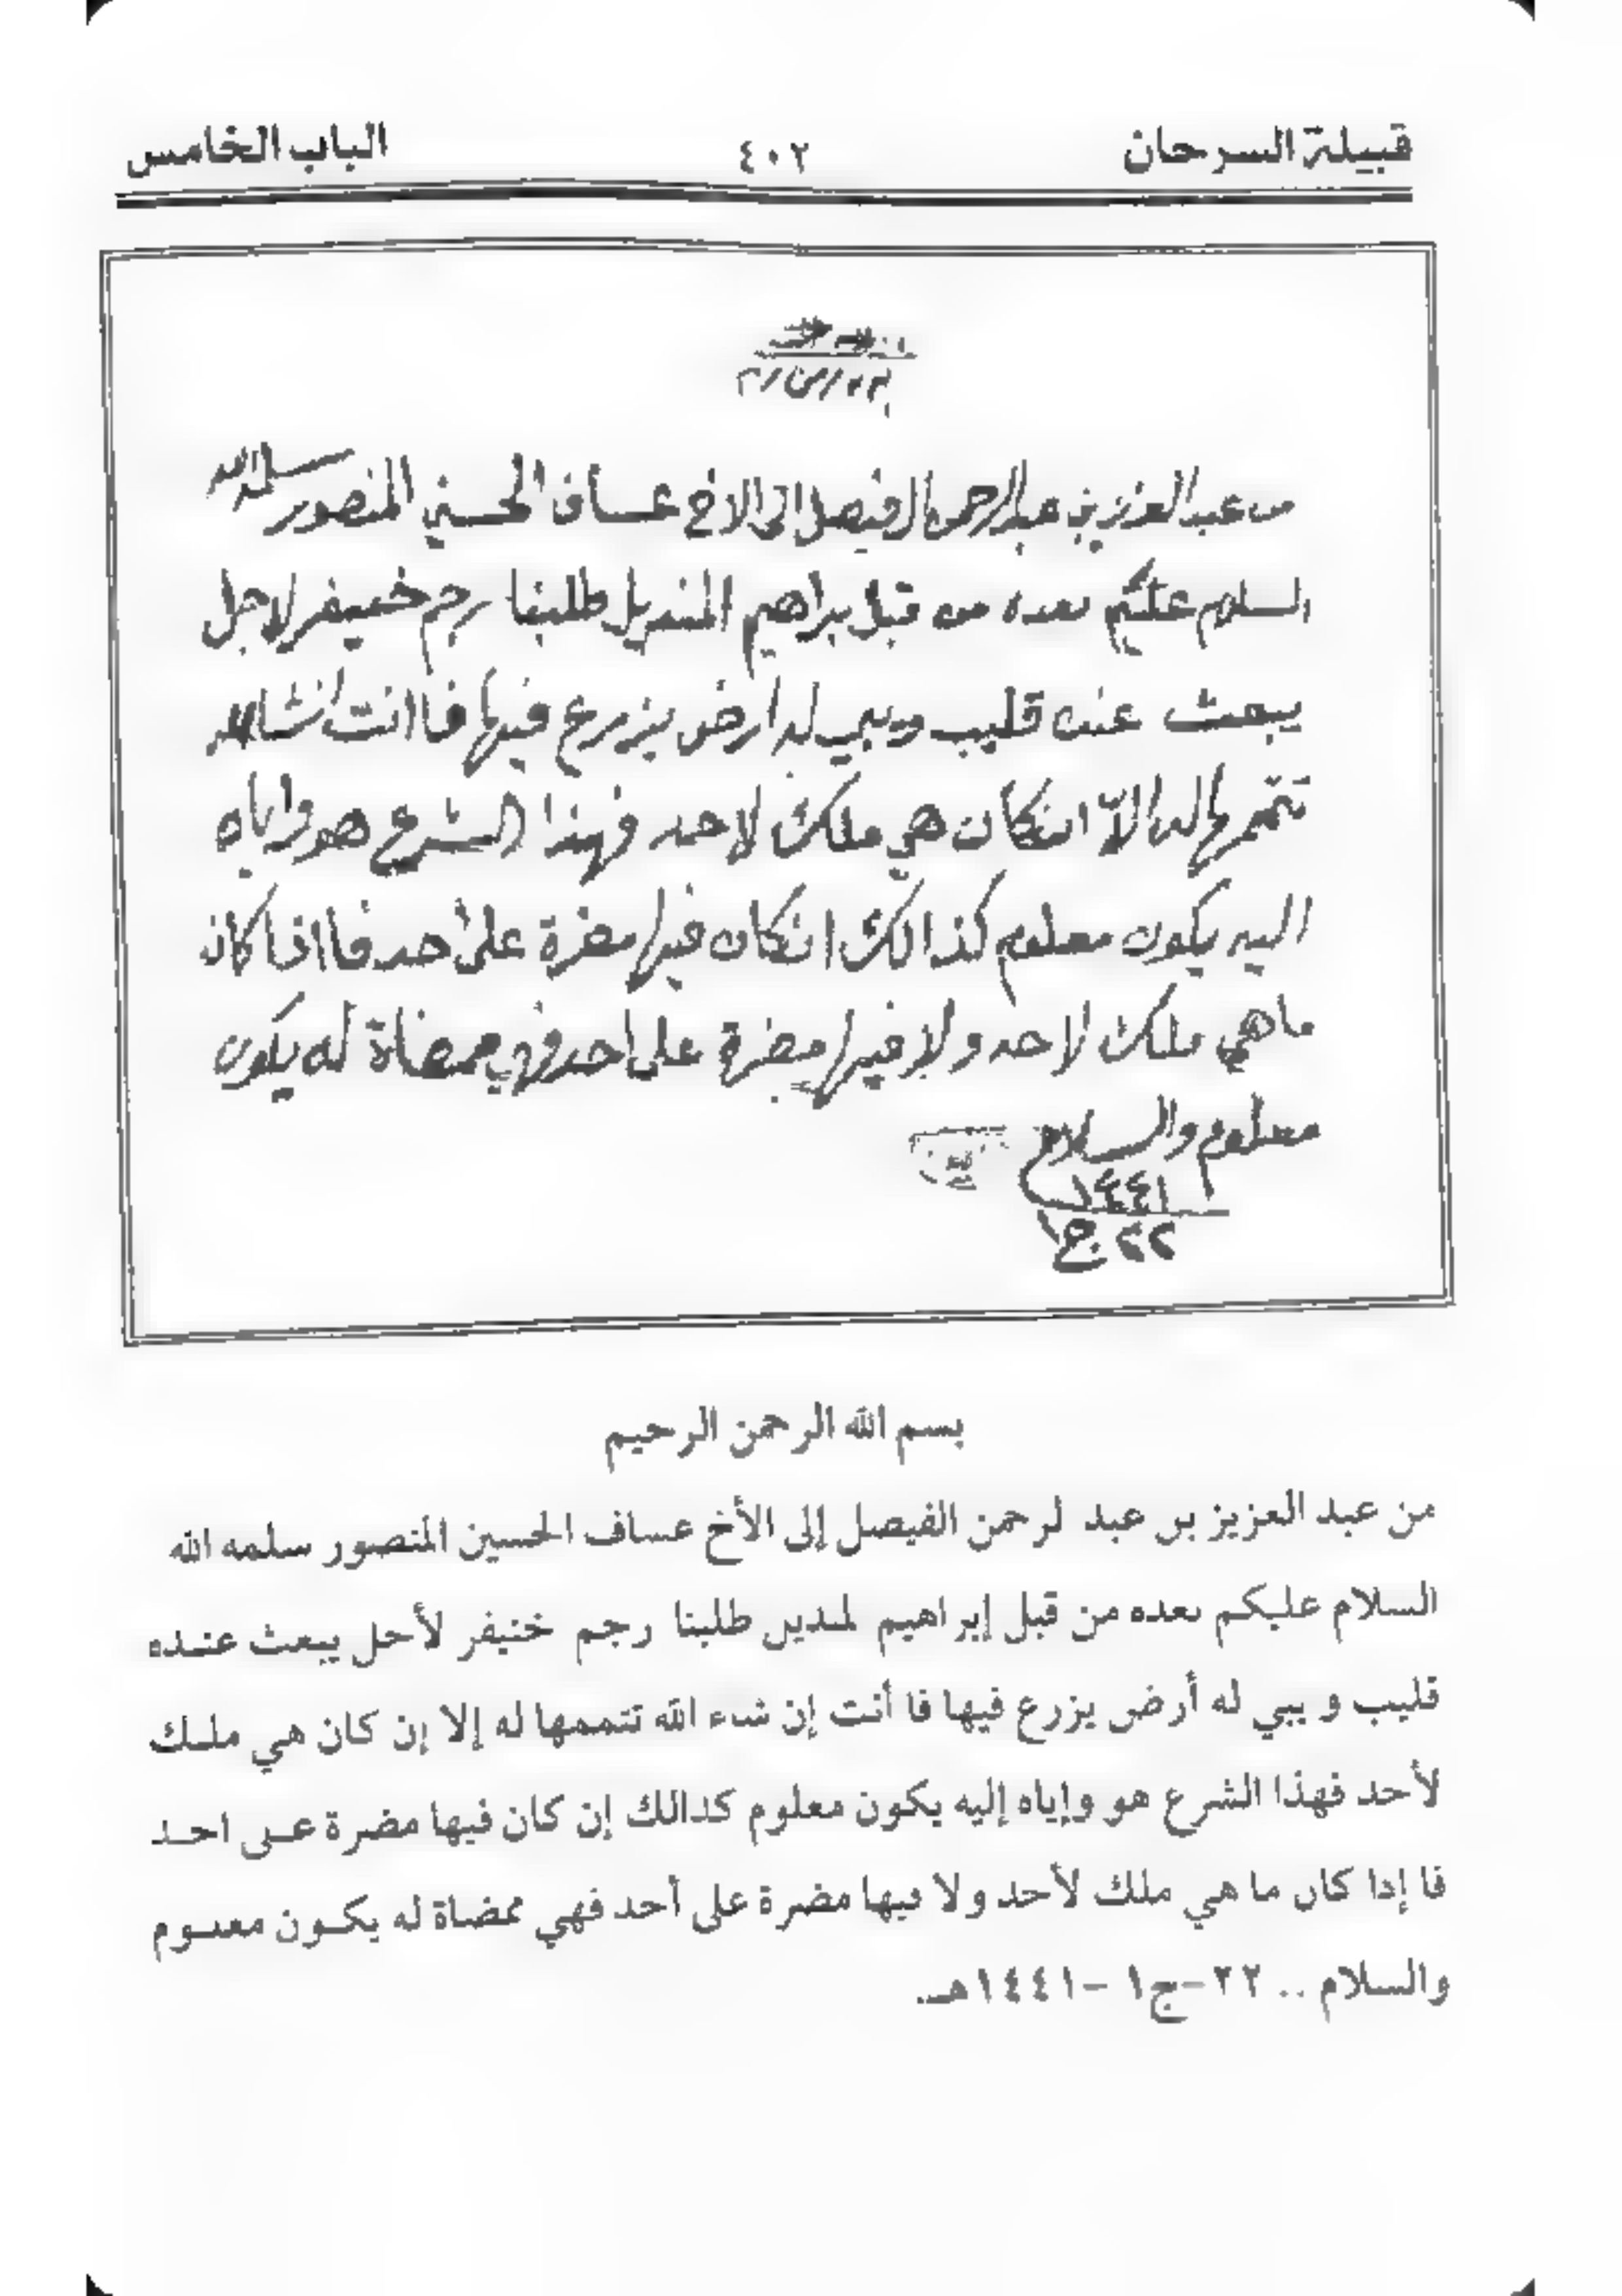 قبيلة السرحان
٤٠٢
الباب الخامس
من عبد العزيز بن عبد الرحمن ال فيصل الى الاخ عساف الحسين المنصور سلمه الله
السلام عليكم بعده من قبل براهيم المنديل طلبنا رجم خنيفر لاجل
يبحث عنده قليب ويبي له ارض يزرع فيها فا انت انشا الله
تتممها له الا انكان هي ملك لاحد فهذا الشرع هو واياه
اليه يكون معلوم كذالك انكان فيها مضرة على احد فا اذا كان
ماهي ملك لاحد ولا فيها مضرة على احد فهي ممضاة له يكون
معلوم والسلام
١٤٤١
٢٢ ج١
بسم الله الرحمن الرحيم
من عبد العزيز بن عبد لرحمن الفيصل إلى الأخ عساف الحسين المنصور سلمه الله
السلام عليكم بعده من قبل إبراهيم لمديل طلبنا رجم خنيفر لأجل يبعث عنده
قليب و يبي له أرض يزرع فيها فا أنت إن شاء الله تتممها له إلا إن كان هي ملك
لأحد فهذا الشرع هو وإياه إليه يكون معلوم كذالك إن كان فيها مضرة على احد
فا إذا كان ما هي ملك لأحد ولا فيها مضرة على أحد فهي ممضاة له يكون معلوم
والسلام .. ٢٢-ج١ -١٤٤١هـ.